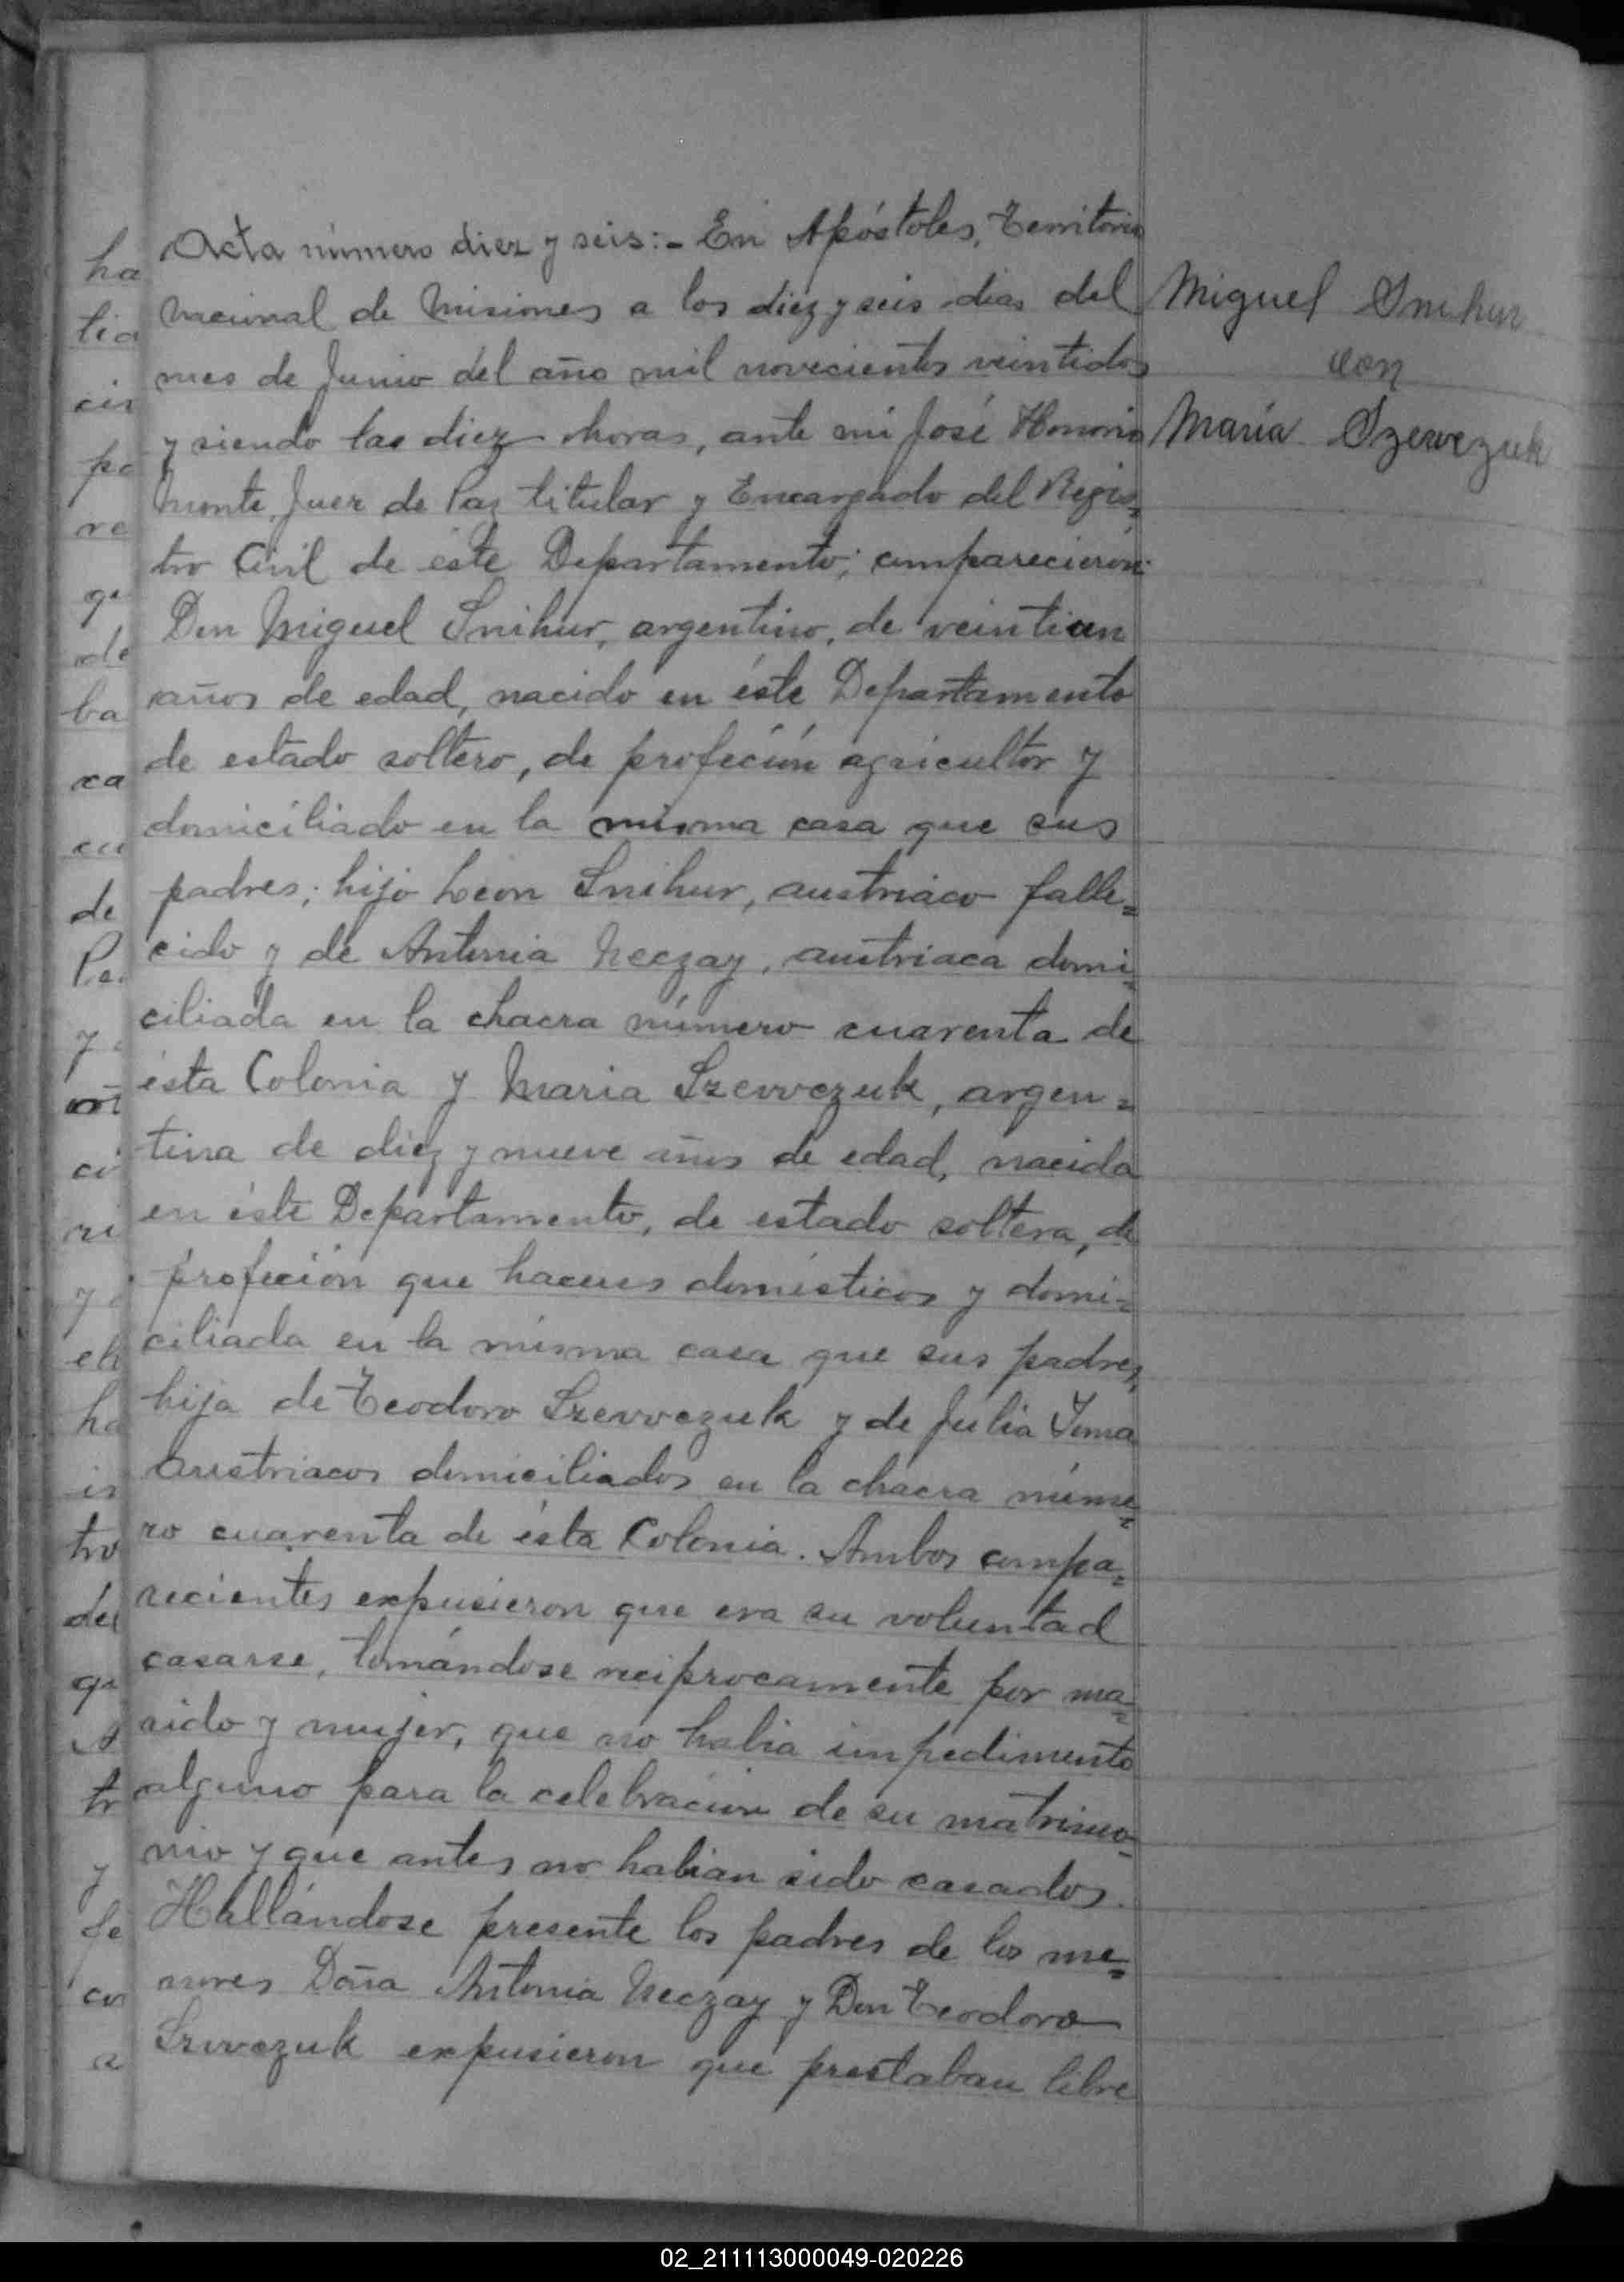 Acta número diez y seis:- En Apóstoles, Territorio
nacional de Misiones a los diez y seis dias del
mes de Junio del año mil novecientos veintidos
y siendo las diez horas, ante mi José Honorio
Juez de Paz titular y Encargado del Regis=
tro Civil de éste Departamento; comparecieron:
Don Miguel Snihur, argentino, de veintiun
años de edad, nacido en éste Departamento
de estado soltero, de profeción agricultor y
domiciliado en la misma casa que sus
padres; hijo Leon Snihur, austriaco falle=
cido y de Antonia Neczay, austriaca domi=
ciliada en la chacra número cuarenta de
ésta Colonia y Maria Szewczuk, argen=
tina de diez y nueve años de edad, nacida
en éste Departamento, de estado soltera, de
profeción que haceres domésticos y domi=
ciliada en la misma casa que sus padres,
hija de Teodoro Szewczuk y de Julia
Austriacos domiciliados en la chacra núme=
ro cuarenta de ésta Colonia. Ambos compa=
recientes expusieron que era su voluntad
casarse, tomándose reciprocamente por ma=
rido y mujer, que no habia impedimento
alguno para la celebracion de su matrimo=
nio y que antes no habian sido casados.
Hallándose presente los padres de los me=
nores Doña Antonia Neczay y Don Teodoro
Szewczuk expusieron que prestaban libre
Miguel Snihur
con
María Szewczuk
ha
tia
cis
pa
re
qu
de
ba
ca
cu
de
y
ci
ri
y
ha
is
tro
del
qu
tr
y
fe
con
a
02_211113000049-020226